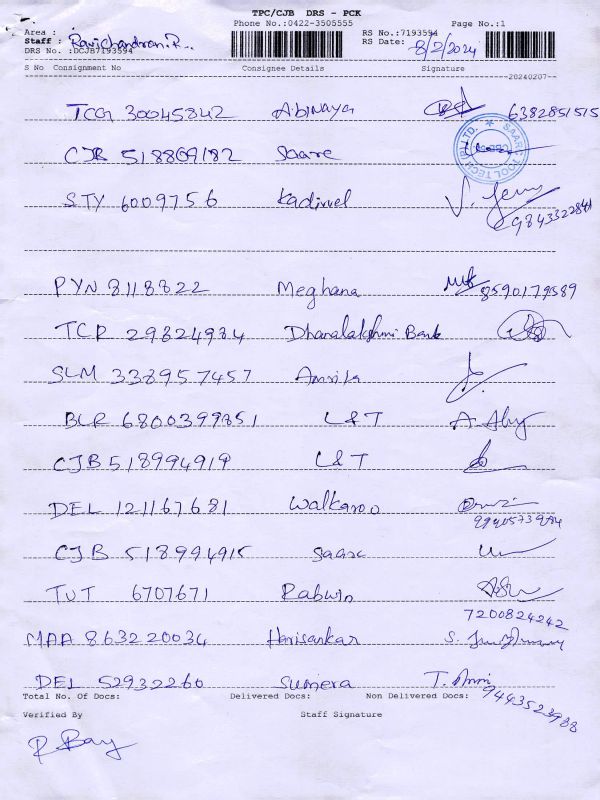 TPC/CJB DRS - PCK
Phone No.:0422-3505555 Page No.:1
Area : RS No.:7193594
Staff : Ravichandran.R. RS Date: 8/2/2024
DRS No. :DCJB7193594
S No Consignment No Consignee Details Signature
20240207
TCG 30045842 Abinaya 6382851515
CJB 518869182 Saare
SAARC TOOL TECH (P) LTD.
STY 6009756 Kadivel
9843322841
PYN 8118822 Meghana 8590179589
TCR 29824984 Dhanalakshmi Bank
SLM 338957457 Amrita
BLR 6800399851 L&T
CJB 518994919 L&T
DEL 121167681 Walkaroo
CJB 518994915 Saarc
TUT 6707671 Rabwin
7200824242
MAA 863220034 Harisankar
DEL 52932260 Sumera
9443523988
Total No. Of Docs: Delivered Docs: Non Delivered Docs:
Verified By Staff Signature